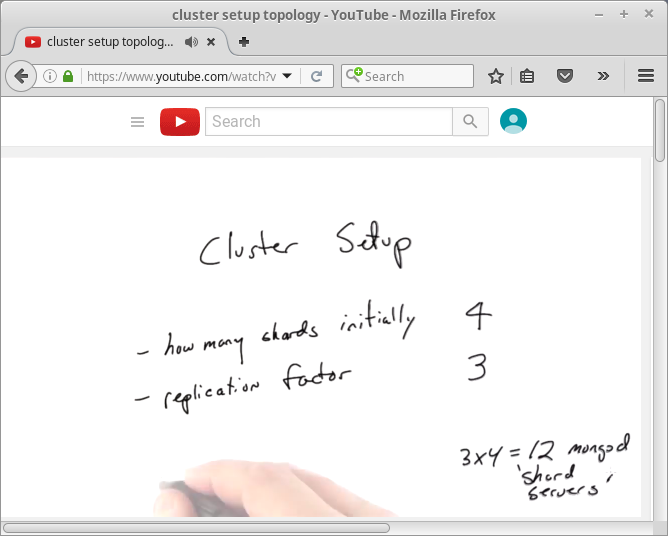 cluster setup topology - YouTube - Mozilla Firefox
cluster setup topolog...
https://www.youtube.com/watch?v
Search
Search
Cluster Setup
- how many shards initially 4
- replication factor 3
3x4 = 12 mongod
'shard
servers'